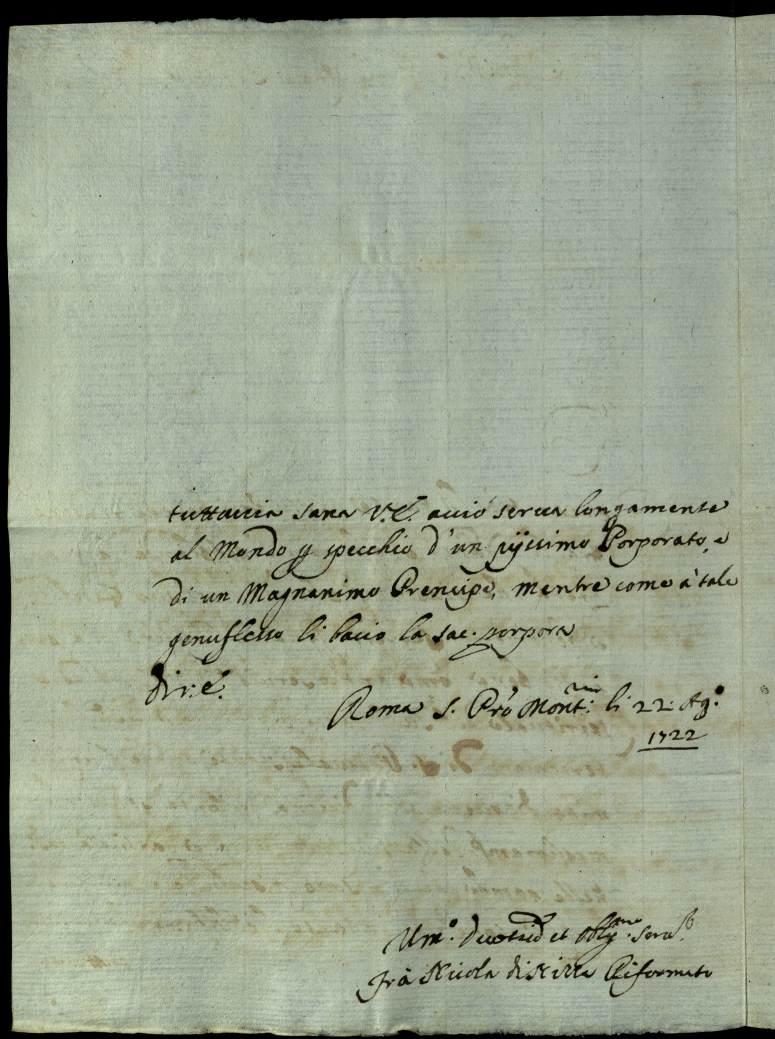 tuttavia sana V.E. acciò serva longamente
al Mondo p specchio d'un pijssimo Porporato, e
di un Magnanimo Prencipe, mentre come à tale
genuflesso li bacio la sac. porpora
Di V.E.
Roma S. Prõ Mont.rio li 22 Ag.o
1722
Um.o Devot et Obg.mo Serv.
Frà Nicola di Riformato